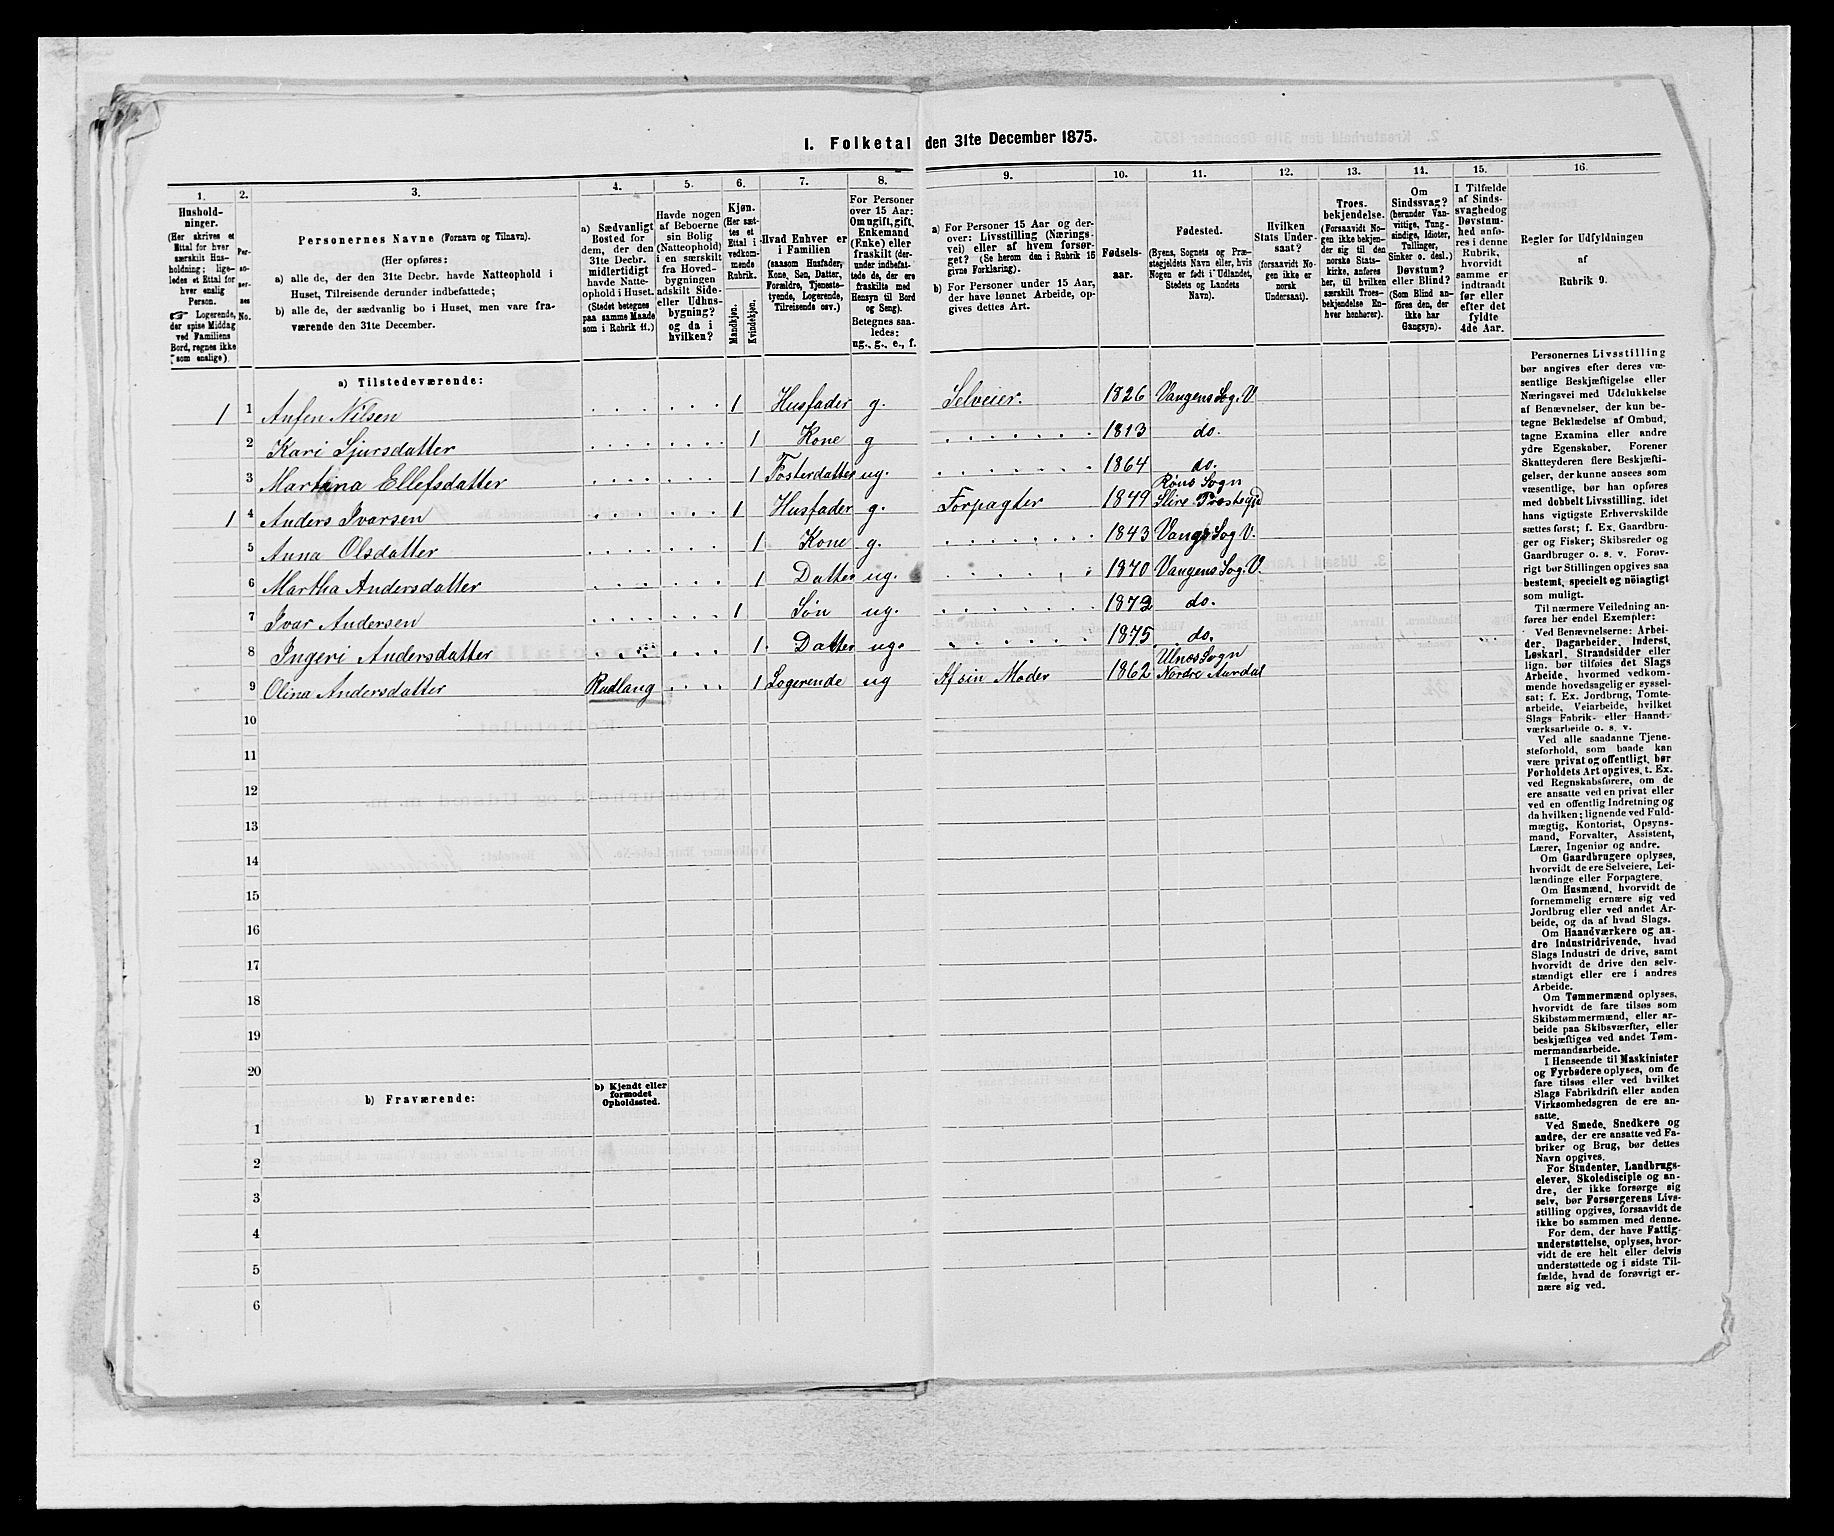 I. Folketal den 31te December 1875.
1.
2.
3.
4.
5.
6.
7.
8.
9.
10.
11.
12.
13.
14.
15.
16.
Hushold-
ninger.
(Her skrives et
Ettal for hver
særskilt Hus-
holdning; lige-
ledes et Ettal for
hver enslig
Person.
☞ Logerende,
der spise Middag
ved Familiens
Bord, regnes ikke
som enslige).
Per-
so-
ner-
nes
No.
Personernes Navne (Fornavn og Tilnavn).
(Her opføres:
a) alle de, der den 31te Decbr. havde Natteophold i
Huset, Tilreisende derunder indbefattede;
b) alle de, der sædvanlig bo i Huset, men vare fra-
værende den 31te December.
a) Sædvanligt
Bosted for
dem, der den
31te Decbr.
midlertidigt
havde Natte-
ophold i Huset.
(Stedet betegnes
paa samme Maade
som i Rubrik 11.)
Havde nogen
af Beboerne
sin Bolig
(Natteophold)
i en særskilt
fra Hoved-
bygningen
adskilt Side-
eller Udhus-
bygning?
og da i
hvilken?
Kjøn.
(Her sæt-
tes et
Ettal i
vedkom-
mende
Rubrik.
Mandkjøn.
Kvindekjøn.
Hvad Enhver er
i Familien
(saasom Husfader,
Kone, Søn, Datter,
Forældre, Tjeneste-
tyende, Logerende,
Tilreisende osv.)
For Personer
over 15 Aar:
Om ugift, gift,
Enkemand
(Enke) eller
fraskilt (der-
under indbefat-
tede de, der ere
fraskilte med
Hensyn til Bord
og Seng).
Betegnes saa-
ledes:
ug., g., e., f.
a) For Personer 15 Aar og der-
over: Livsstilling (Nærings-
vei) eller af hvem forsør-
get? (Se herom den i Rubrik 16
givne Forklaring).
b) For Personer under 15 Aar,
der have lønnet Arbeide, op-
gives dettes Art.
Fødsels-
aar.
Fødested.
(Byens, Sognets og Præ-
stegjeldets Navn eller, hvis
Nogen er født i Udlandet,
Stedets og Landets
Navn).
Hvilken
Stats Under-
saat?
(forsaavidt No-
gen ikke er
norsk
Undersaat).
Troes-
bekjendelse.
(Forsaavidt No-
gen ikke bekjen-
der sig til den
norske Stats-
kirke, anføres
her, til hvilken
særskilt Troes-
bekjendelse En-
hver henhører).
Om
Sindssvag?
(herunder Van-
vittige, Tung-
sindige, Idioter,
Tullinger,
Sinker o. desl.)
Døvstum?
eller Blind?
(Som Blind an-
føres den, der
ikke har
Gangsyn).
I Tilfælde
af Sinds-
svaghed og
Døvstum-
hed anfø-
res i denne
Rubrik,
hvorvidt
samme er
indtraadt
før eller
efter det
fyldte
4de Aar.
Regler for Udfyldningen
af
Rubrik 9.
a) Tilstedeværende:
1 1 Anfen Nilsen 1 Husfader g. Selveier. 1826 Vangens Sog. V.
2 Kari Sjursdatter 1 Kone g 1813 do.
3 Martina Ellefsdatter 1 Fosterdatter ug. 1864 do.
Røns Sogn
1 4 Anders Ivarsen 1 Husfader g. Forpagter 1849 Slire
5 Anna Olsdatter 1 Kone g. 1843 Vangs Sog V.
6 Martha Andersdatter 1 Datter ug. 1870 Vangens Sog. V.
7 Ivar Andersen 1 Søn ug. 1872 do.
8 Ingeri Andersdatter 1 Datter ug. 1875 do.
Ulnes Sogn
9 Olina Andersdatter Rudlang 1 Logerende ug Af sin Moder 1862 Nordre Aurdal
10
11
12
13
14
15
16
17
18
19
20
b) Fraværende:
b) Kjendt eller
formodet
Opholdssted.
1
2
3
4
5
6
Personernes Livsstilling
bør angives efter deres væ-
sentlige Beskjæftigelse eller
Næringsvei med Udelukkelse
af Benævnelser, der kun be-
tegne Beklædelse af Ombud,
tagne Examina eller andre
ydre Egenskaber. Forener
Skatteyderen flere Beskjæfti-
gelser, der kunne ansees som
væsentlige, bør han opføres
med dobbelt Livsstilling, idet
hans vigtigste Erhvervskilde
sættes først; f. Ex. Gaardbru-
ger og Fisker; Skibsreder og
Gaardbruger o. s. v. Forøv-
rigt bør Stillingen opgives saa
bestemt, specielt og nöiagtigt
som muligt.
Til nærmere Veiledning an-
føres her endel Exempler:
Ved Benævnelserne: Arbei-
der, Dagarbeider, Inderst,
Løskarl, Strandsidder eller
lign. bør tilføies det Slags
Arbeide, hvormed vedkom-
mende hovedsagelig er syssel-
sat; f. Ex. Jordbrug, Tomte-
arbeide, Veiarbeide, hvilket
Slags Fabrik- eller Haand-
værksarbeide o. s. v.
Ved alle saadanne Tjene-
steforhold, som baade kan
være privat og offentligt, bør
Forholdets Art opgives, t. Ex.
ved Regnskabsførere, om de
ere ansatte ved en privat eller
ved en offentlig Indretning og
da hvilken; lignende ved Fuld-
mægtig, Kontorist, Opsyns-
mand, Forvalter, Assistent,
Lærer, Ingeniør og andre.
Om Gaardbrugere oplyses,
hvorvidt de ere Selveiere, Lei-
lændinge eller Forpagtere.
Om Husmænd, hvorvidt de
fornemmelig ernære sig ved
Jordbrug eller ved andet Ar-
beide, og da af hvad Slags.
Om Haandværkere og an-
dre Industridrivende, hvad
Slags Industri de drive, samt
hvorvidt de drive den selv-
stændigt eller ere i andres
Arbeide.
Om Tømmermænd oplyses,
hvorvidt de fare tilsøs som
Skibstømmermænd, eller ar-
beide paa Skibsværfter, eller
beskjæftiges ved andet Tøm-
mermandsarbeide.
I Henseende til Maskinister
og Fyrbødere oplyses, om de
fare tilsøs eller ved hvilket
Slags Fabrikdrift eller anden
Virksomhedsgren de ere an-
satte.
Ved Smede, Snedkere og
andre, der ere ansatte ved Fa-
briker og Brug, bør dettes
Navn opgives.
For Studenter, Landbrugs-
elever, Skoledisciple og an-
dre, der ikke forsørge sig
selv, bør Forsørgerens Livs-
stilling opgives, forsaavidt de
ikke bo sammen med denne.
For dem, der have Fattig-
understøttelse, oplyses, hvor-
vidt de ere helt eller delvis
understøttede og i sidste Til-
fælde, hvad de forøvrigt er-
nære sig ved.